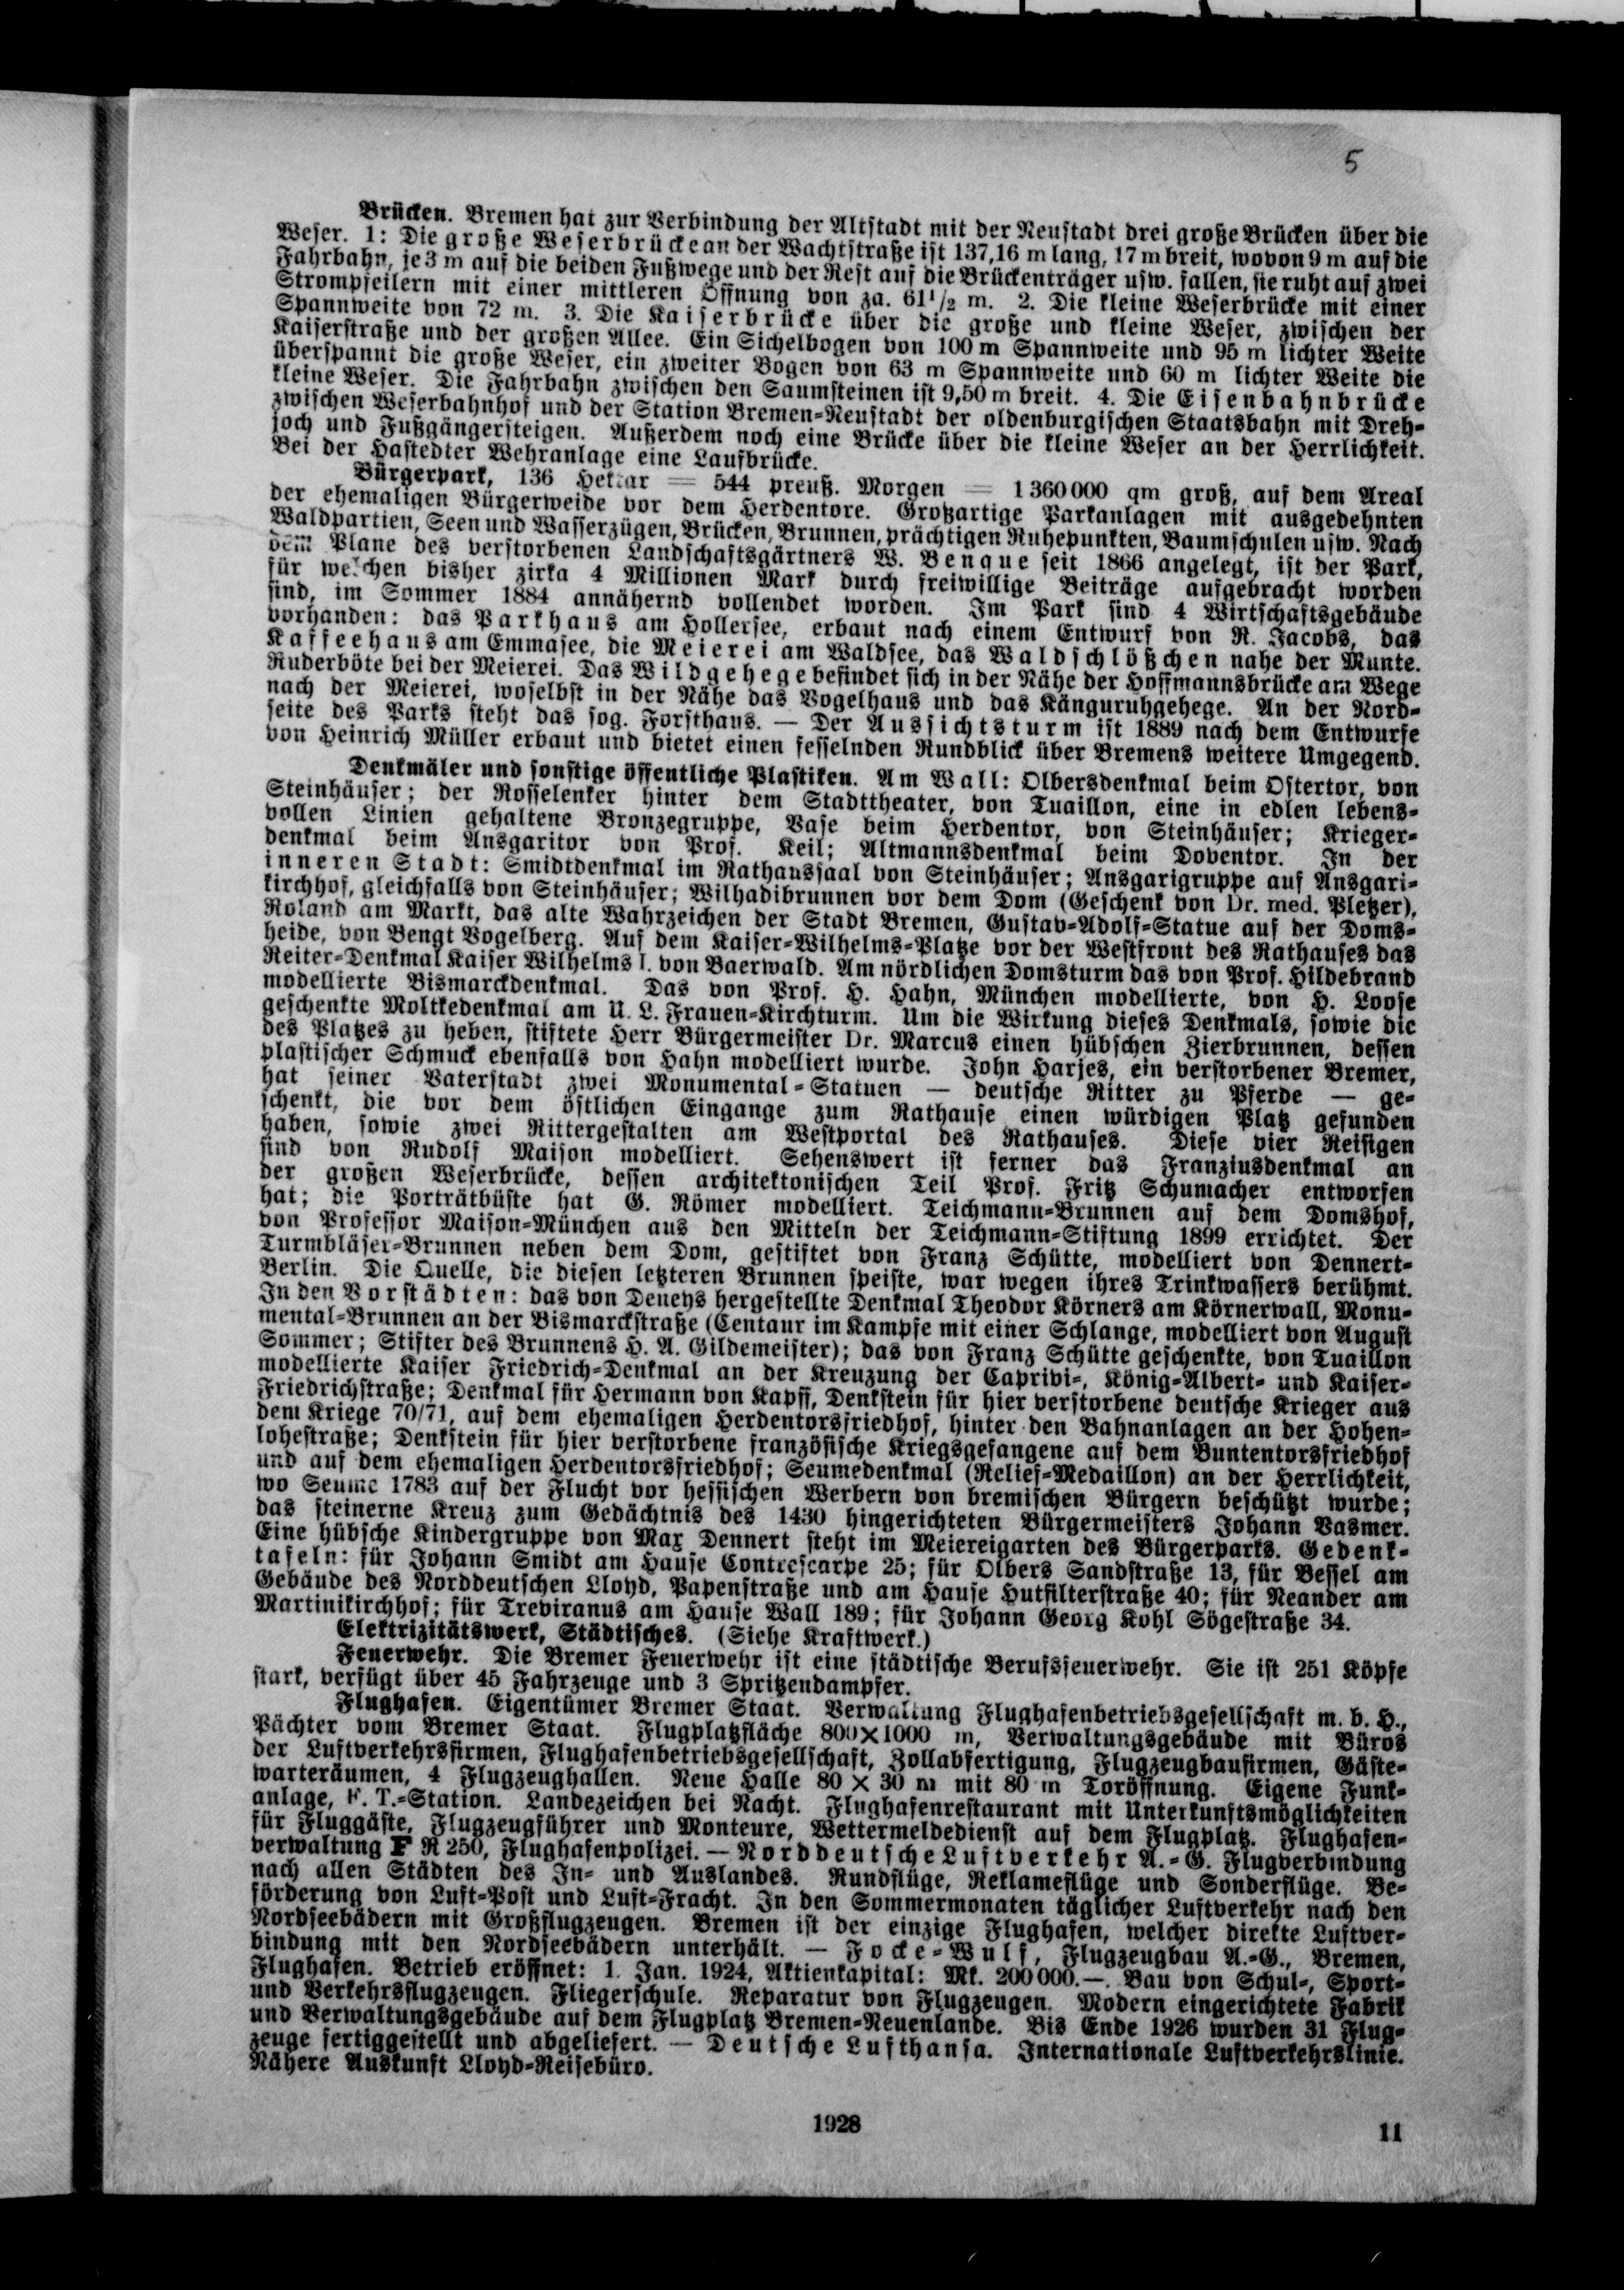 5
Brücken. Bremen hat zur Verbindung der Altstadt mit der Neustadt drei große Brücken über die
Weser. 1: Die große Weserbrücke an der Wachtstraße ist 137,16 m lang, 17 m breit, wovon 9 m auf die
Fahrbahn, je 3 m auf die beiden Fußwege und der Rest auf die Brückenträger usw. fallen, sie ruht auf zwei
Strompfeilern mit einer mittleren Öffnung von za. 61½ m. 2. Die kleine Weserbrücke mit einer
Spannweite von 72 m. 3. Die Kaiserbrücke über die große und kleine Weser, zwischen der
Kaiserstraße und der großen Allee. Ein Sichelbogen von 100 m Spannweite und 95 m lichter Weite
überspannt die große Weser, ein zweiter Bogen von 63 m Spannweite und 60 m lichter Weite die
kleine Weser. Die Fahrbahn zwischen den Saumsteinen ist 9,50 m breit. 4. Die Eisenbahnbrücke
zwischen Weserbahnhof und der Station Bremen-Neustadt der oldenburgischen Staatsbahn mit Dreh-
joch und Fußgängersteigen. Außerdem noch eine Brücke über die kleine Weser an der Herrlichkeit.
Bei der Hastedter Wehranlage eine Laufbrücke.
Bürgerpark, 136 Hektar = 544 preuß. Morgen = 1 360 000 qm groß, auf dem Areal
der ehemaligen Bürgerweide vor dem Herdentore. Großartige Parkanlagen mit ausgedehnten
Waldpartien, Seen und Wasserzügen, Brücken, Brunnen, prächtigen Ruhepunkten, Baumschulen usw. Nach
dem Plane des verstorbenen Landschaftsgärtners W. Benque seit 1866 angelegt, ist der Park,
für welchen bisher zirka 4 Millionen Mark durch freiwillige Beiträge aufgebracht worden
sind, im Sommer 1884 annähernd vollendet worden. Im Park sind 4 Wirtschaftsgebäude
vorhanden: das Parkhaus am Hollersee, erbaut nach einem Entwurf von R. Jacobs, das
Kaffeehaus am Emmasee, die Meierei am Waldsee, das Waldschlößchen nahe der Munte.
Ruderböte bei der Meierei. Das Wildgehege befindet sich in der Nähe der Hoffmannsbrücke am Wege
nach der Meierei, woselbst in der Nähe das Vogelhaus und das Känguruhgehege. An der Nord-
seite des Parks steht das sog. Forsthaus. — Der Aussichtsturm ist 1889 nach dem Entwurfe
von Heinrich Müller erbaut und bietet einen fesselnden Rundblick über Bremens weitere Umgegend.
Denkmäler und sonstige öffentliche Plastiken. Am Wall: Olbersdenkmal beim Ostertor, von
Steinhäuser; der Rosselenker hinter dem Stadttheater, von Tuaillon, eine in edlen lebens-
vollen Linien gehaltene Bronzegruppe, Vase beim Herdentor, von Steinhäuser; Krieger-
denkmal beim Ansgaritor von Prof. Keil; Altmannsdenkmal beim Doventor. In der
inneren Stadt: Smidtdenkmal im Rathaussaal von Steinhäuser; Ansgarigruppe auf Ansgari-
kirchhof, gleichfalls von Steinhäuser; Wilhadibrunnen vor dem Dom (Geschenk von Dr. med. Pletzer),
Roland am Markt, das alte Wahrzeichen der Stadt Bremen, Gustav-Adolf-Statue auf der Doms-
heide, von Bengt Vogelberg. Auf dem Kaiser-Wilhelms-Platze vor der Westfront des Rathauses das
Reiter-Denkmal Kaiser Wilhelms I. von Baerwald. Am nördlichen Domsturm das von Prof. Hildebrand
modellierte Bismarckdenkmal. Das von Prof. H. Hahn, München modellierte, von H. Loose
geschenkte Moltkedenkmal am U. L. Frauen-Kirchturm. Um die Wirkung dieses Denkmals, sowie die
des Platzes zu heben, stiftete Herr Bürgermeister Dr. Marcus einen hübschen Zierbrunnen, dessen
plastischer Schmuck ebenfalls von Hahn modelliert wurde. John Harjes, ein verstorbener Bremer,
hat seiner Vaterstadt zwei Monumental-Statuen — deutsche Ritter zu Pferde — ge-
schenkt, die vor dem östlichen Eingange zum Rathause einen würdigen Platz gefunden
haben, sowie zwei Rittergestalten am Westportal des Rathauses. Diese vier Reisigen
sind von Rudolf Maison modelliert. Sehenswert ist ferner das Franziusdenkmal an
der großen Weserbrücke, dessen architektonischen Teil Prof. Fritz Schumacher entworfen
hat; die Porträtbüste hat G. Römer modelliert. Teichmann-Brunnen auf dem Domshof,
von Professor Maison-München aus den Mitteln der Teichmann-Stiftung 1899 errichtet. Der
Turmbläser-Brunnen neben dem Dom, gestiftet von Franz Schütte, modelliert von Dennert-
Berlin. Die Quelle, die diesen letzteren Brunnen speiste, war wegen ihres Trinkwassers berühmt.
In den Vorstädten: das von Deneys hergestellte Denkmal Theodor Körners am Körnerwall, Monu-
mental-Brunnen an der Bismarckstraße (Centaur im Kampfe mit einer Schlange, modelliert von August
Sommer; Stifter des Brunnens H. A. Gildemeister); das von Franz Schütte geschenkte, von Tuaillon
modellierte Kaiser Friedrich-Denkmal an der Kreuzung der Caprivi-, König-Albert- und Kaiser-
Friedrichstraße; Denkmal für Hermann von Kapff, Denkstein für hier verstorbene deutsche Krieger aus
dem Kriege 70/71, auf dem ehemaligen Herdentorsfriedhof, hinter den Bahnanlagen an der Hohen-
lohestraße; Denkstein für hier verstorbene französische Kriegsgefangene auf dem Buntentorsfriedhof
und auf dem ehemaligen Herdentorsfriedhof; Seumedenkmal (Relief-Medaillon) an der Herrlichkeit,
wo Seume 1783 auf der Flucht vor hessischen Werbern von bremischen Bürgern beschützt wurde;
das steinerne Kreuz zum Gedächtnis des 1430 hingerichteten Bürgermeisters Johann Vasmer.
Eine hübsche Kindergruppe von Max Dennert steht im Meiereigarten des Bürgerparks. Gedenk-
tafeln: für Johann Smidt am Hause Contrescarpe 25; für Olbers Sandstraße 13, für Bessel am
Gebäude des Norddeutschen Lloyd, Papenstraße und am Hause Hutfilterstraße 40; für Neander am
Martinikirchhof; für Treviranus am Hause Wall 189; für Johann Georg Kohl Sögestraße 34.
Elektrizitätswerk, Städtisches. (Siehe Kraftwerk.)
Feuerwehr. Die Bremer Feuerwehr ist eine städtische Berufsfeuerwehr. Sie ist 251 Köpfe
stark, verfügt über 45 Fahrzeuge und 3 Spritzendampfer.
Flughafen. Eigentümer Bremer Staat. Verwaltung Flughafenbetriebsgesellschaft m. b. H.,
Pächter vom Bremer Staat. Flugplatzfläche 800×1000 m, Verwaltungsgebäude mit Büros
der Luftverkehrsfirmen, Flughafenbetriebsgesellschaft, Zollabfertigung, Flugzeugbaufirmen, Gäste-
warteräumen, 4 Flugzeughallen. Neue Halle 80 × 30 m mit 80 m Toröffnung. Eigene Funk-
anlage, F. T.-Station. Landezeichen bei Nacht. Flughafenrestaurant mit Unterkunftsmöglichkeiten
für Fluggäste, Flugzeugführer und Monteure, Wettermeldedienst auf dem Flugplatz. Flughafen-
verwaltung F R 250, Flughafenpolizei. — Norddeutsche Luftverkehr A.-G. Flugverbindung
nach allen Städten des In- und Auslandes. Rundflüge, Reklameflüge und Sonderflüge. Be-
förderung von Luft-Post und Luft-Fracht. In den Sommermonaten täglicher Luftverkehr nach den
Nordseebädern mit Großflugzeugen. Bremen ist der einzige Flughafen, welcher direkte Luftver-
bindung mit den Nordseebädern unterhält. — Focke-Wulf, Flugzeugbau A.-G., Bremen,
Flughafen. Betrieb eröffnet: 1. Jan. 1924, Aktienkapital: Mk. 200 000.—. Bau von Schul-, Sport-
und Verkehrsflugzeugen. Fliegerschule. Reparatur von Flugzeugen. Modern eingerichtete Fabrik
und Verwaltungsgebäude auf dem Flugplatz Bremen-Neuenlande. Bis Ende 1926 wurden 31 Flug-
zeuge fertiggestellt und abgeliefert. — Deutsche Lufthansa. Internationale Luftverkehrslinie.
Nähere Auskunft Lloyd-Reisebüro.
1928
11